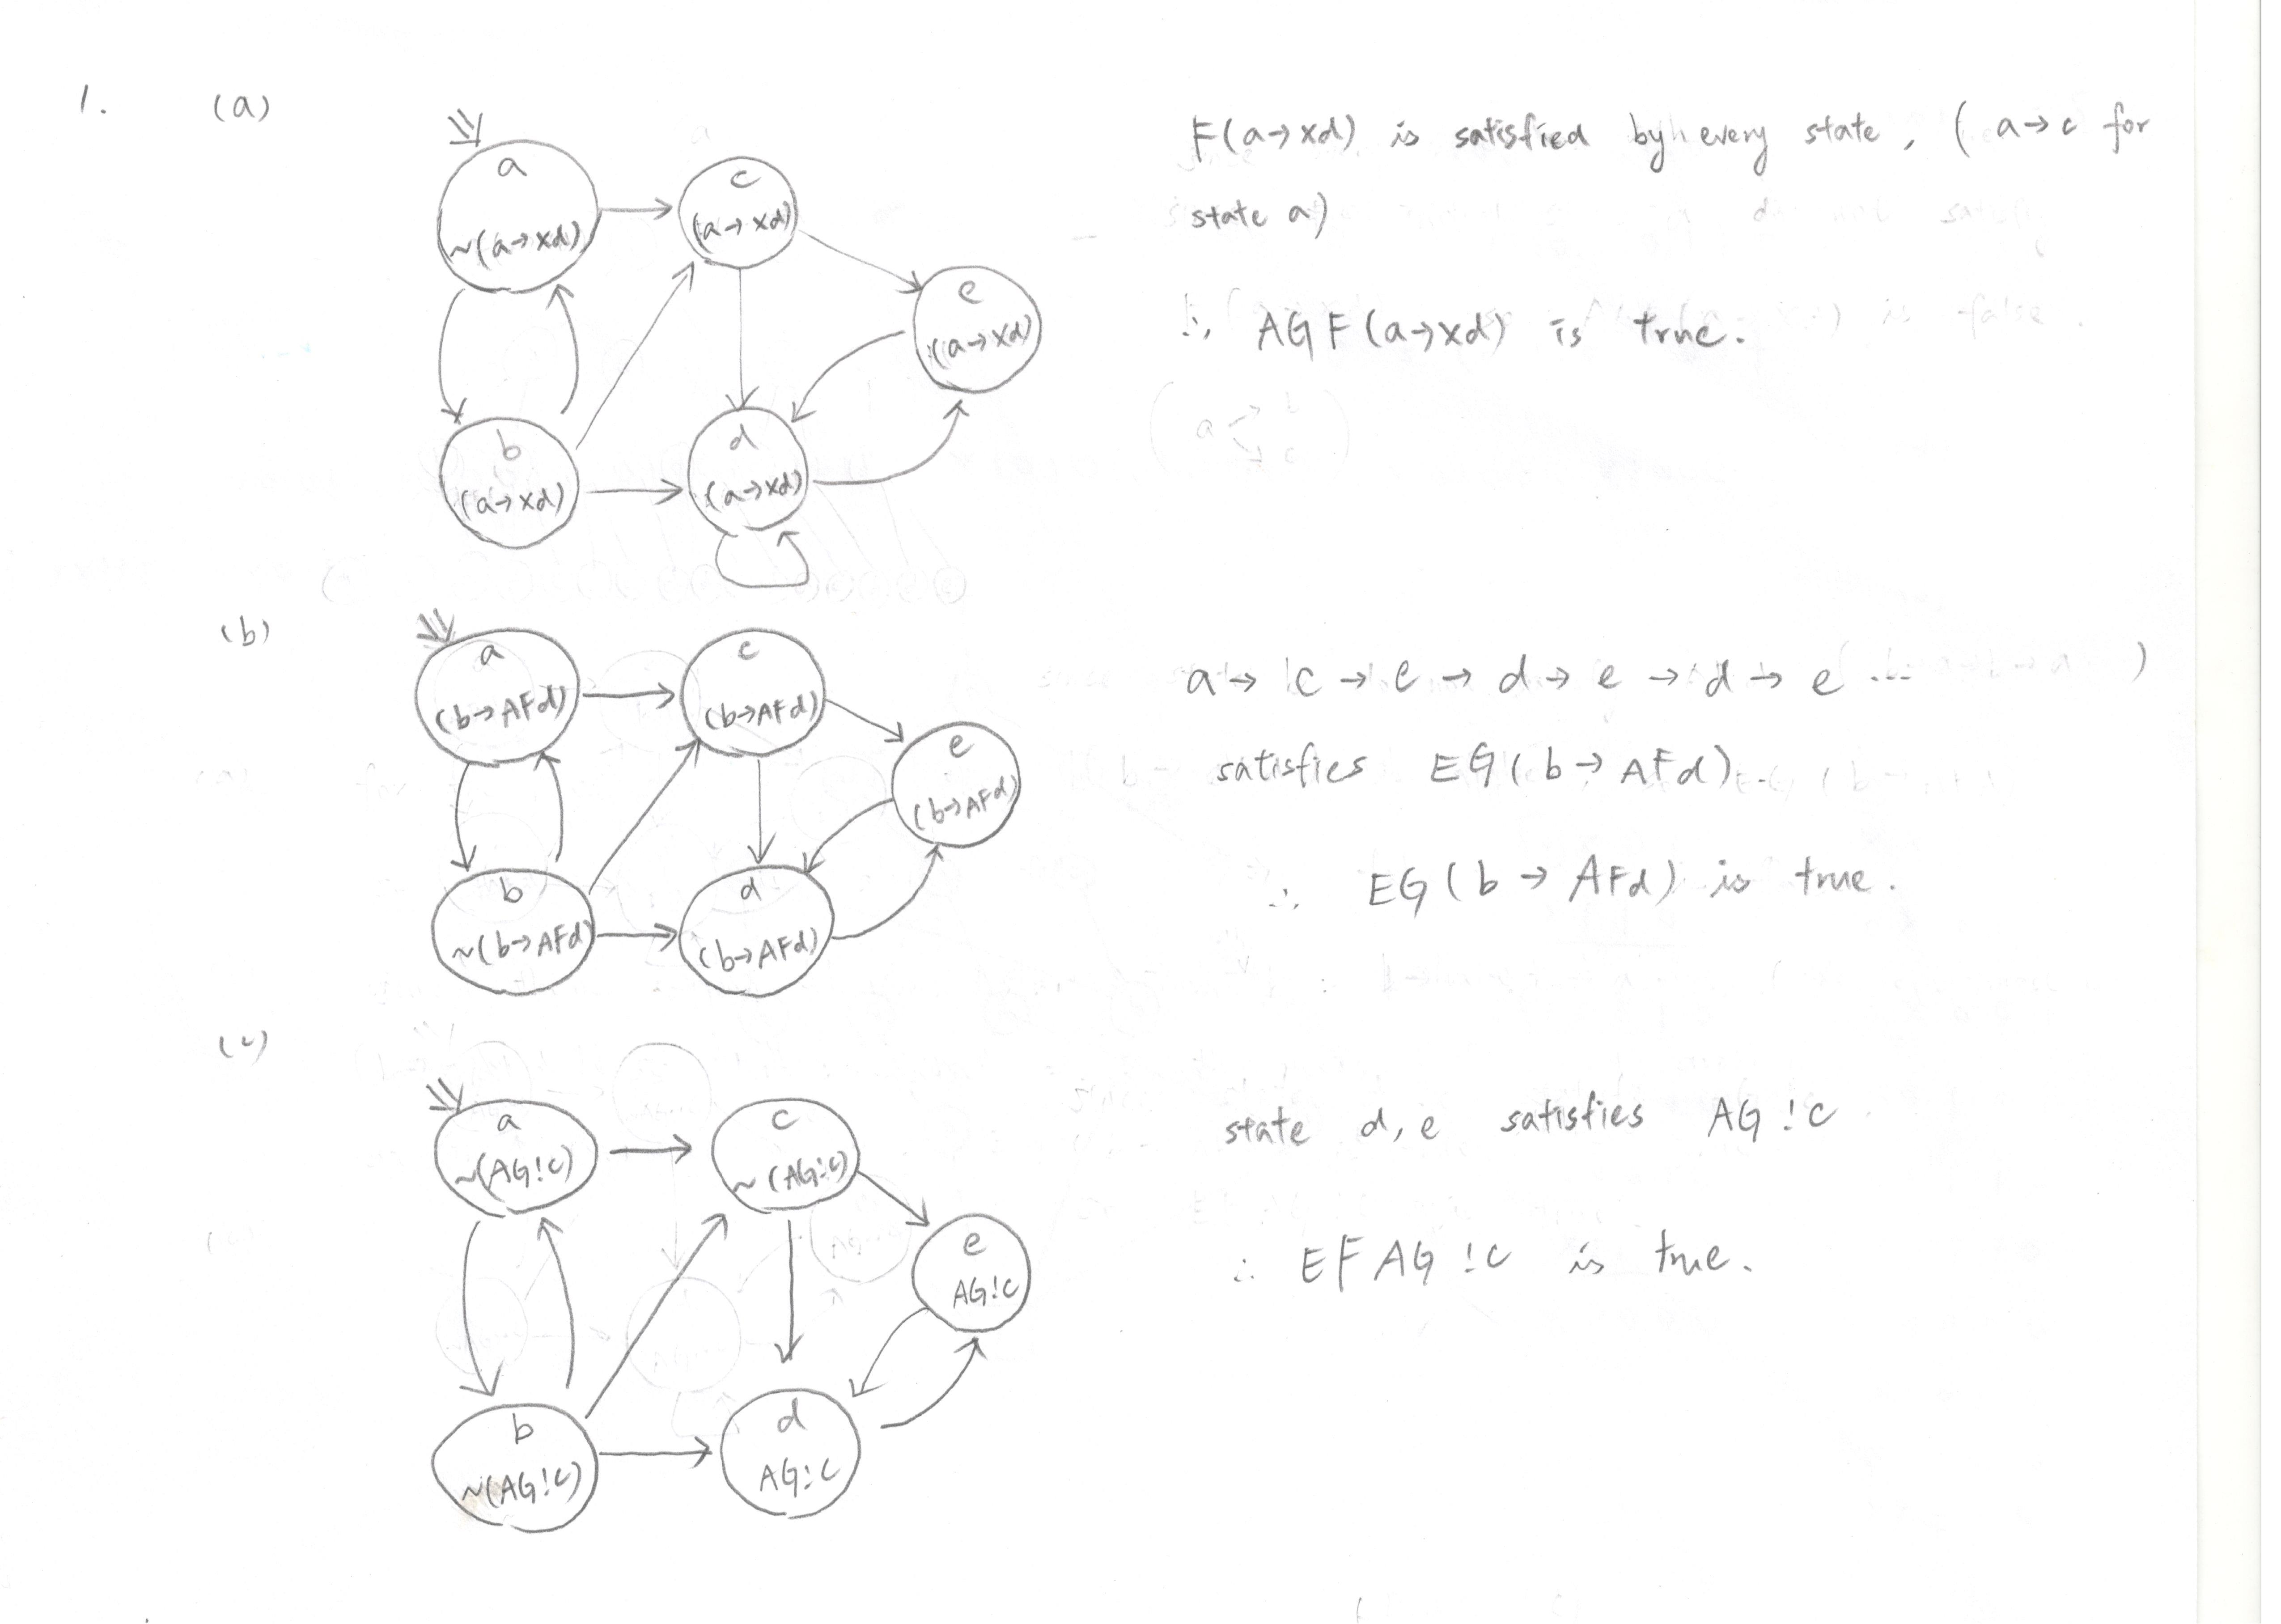 1. (a)
a
~(a→Xd)
c
(a→Xd)
e
(a→Xd)
b
(a→Xd)
d
(a→Xd)
F(a→Xd) is satisfied by every state, ( a→c for
state a)
∴ AGF(a→Xd) is true.
(b)
a
(b→AFd)
c
(b→AFd)
e
(b→AFd)
b
~(b→AFd)
d
(b→AFd)
a → c → e → d → e → d → e ... )
satisfies EG(b→AFd).
∴ EG(b→AFd) is true.
(c)
a
~(AG!c)
c
~(AG!c)
e
AG!c
b
~(AG!c)
d
AG!c
state d, e satisfies AG!c
∴ EFAG!c is true.